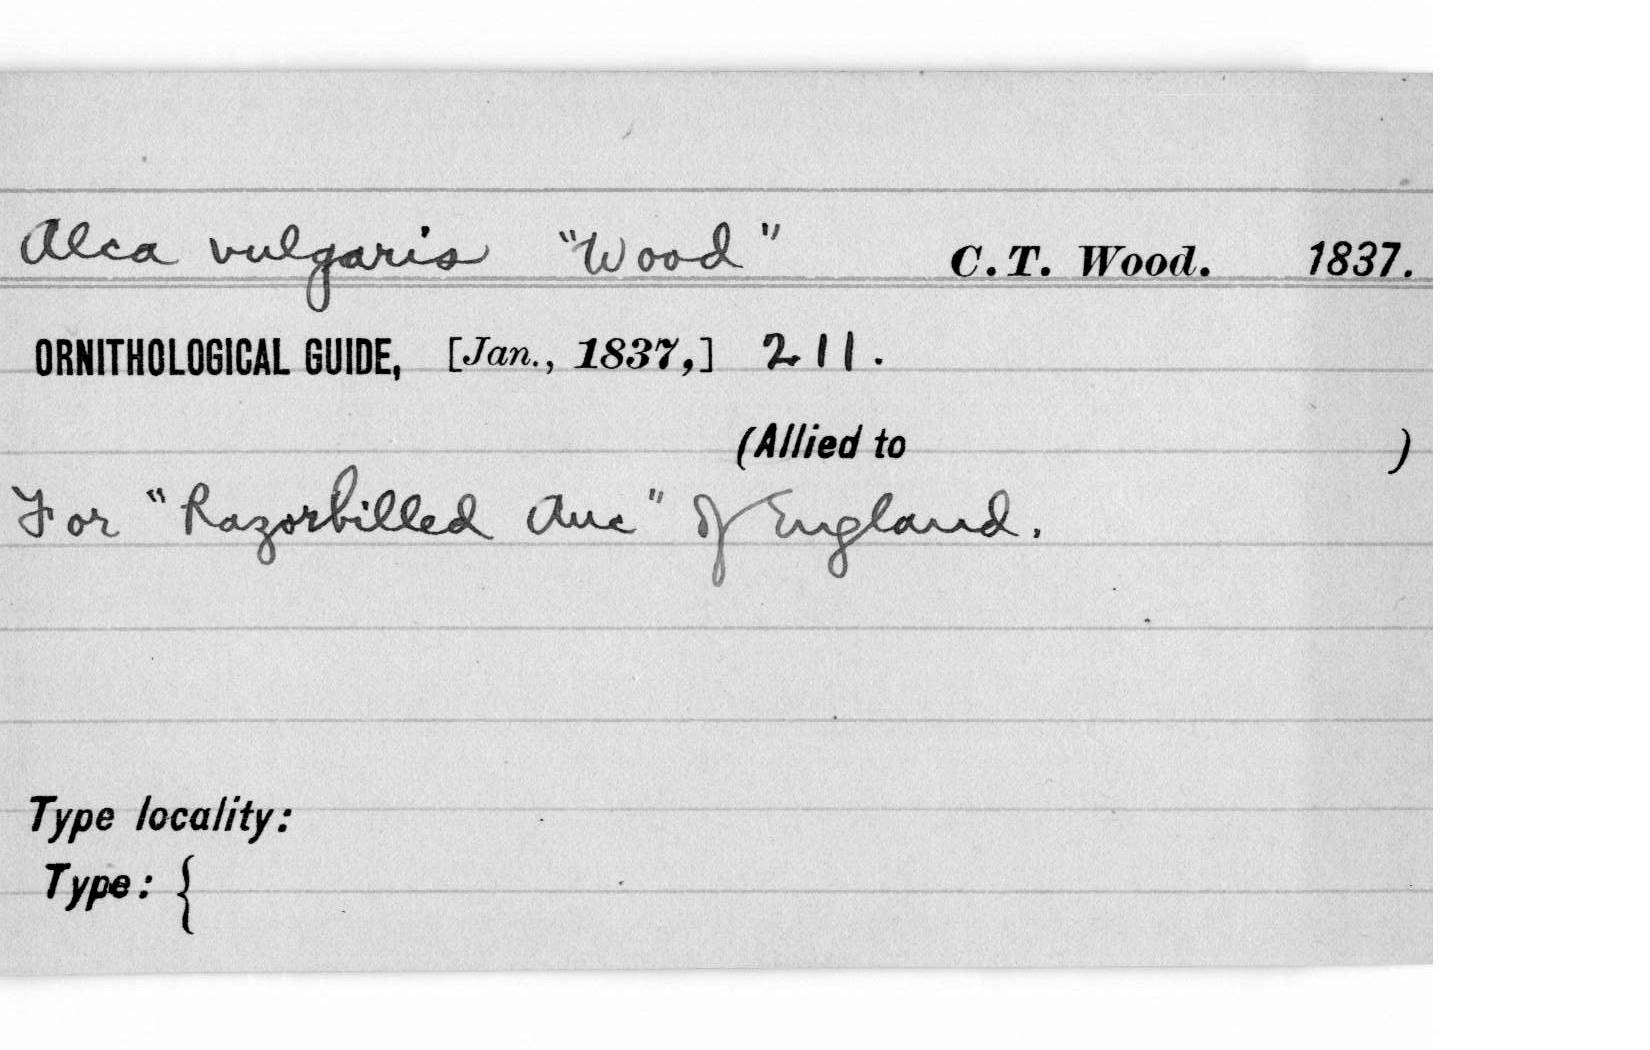 Alca vulgaris "Wood" C. T. Wood. 1837.
ORNITHOLOGICAL GUIDE, [Jan., 1837,] 211.
(Allied to )
For "Razorbilled Auc" of England.
Type locality:
Type: {